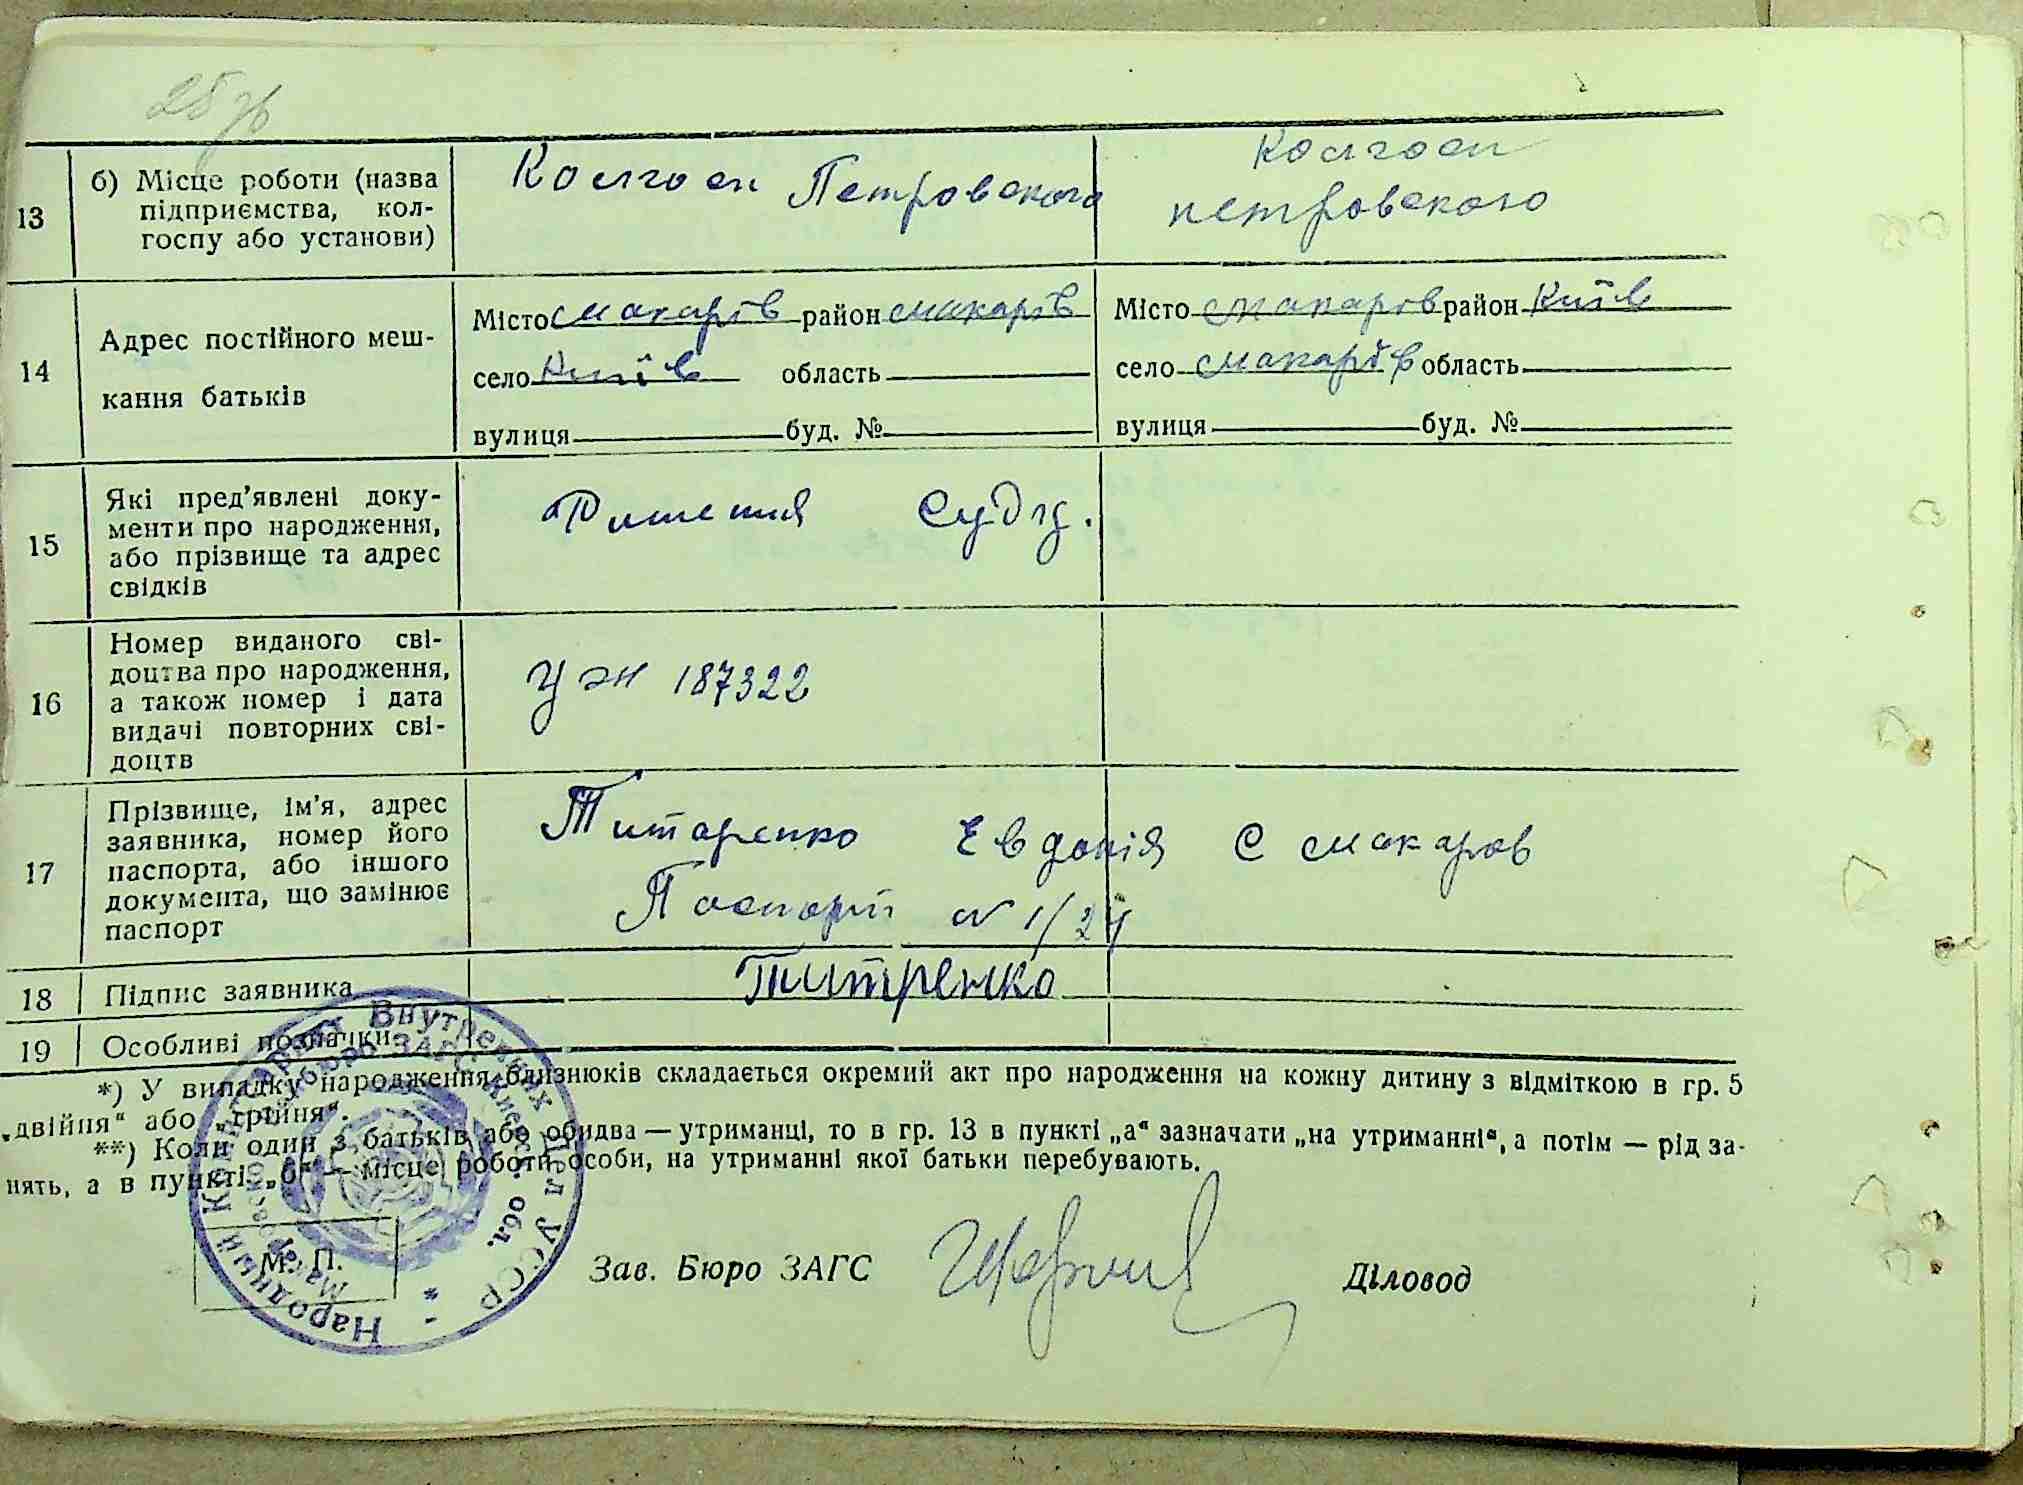 25 зв
13
б) Місце роботи (назва
підприємства, кол-
госпу або установи)
Колгосп Петровского
Колгосп
петровского
14
Адрес постійного меш-
кання батьків
Місто Макарів район Макарів
село Київ область
вулиця буд. №
Місто Макаров район Київ
село Макарів область
вулиця буд. №
15
Які пред’явлені доку-
менти про народження,
або прізвище та адрес
свідків
Ришения Суда.
16
Номер виданого сві-
доцтва про народження,
а також номер і дата
видачі повторних сві-
доцтв
УЖ 187322
17
Прізвище, ім’я, адрес
заявника, номер його
паспорта, або іншого
документа, що замінює
паспорт
Титаренко Евдокія С Макаров
Паспорт № 1/24
18
Підпис заявника
Титренко
19
Особливі позначки
*) У випадку народження близнюків складається окремий акт про народження на кожну дитину з відміткою в гр. 5
„двійня“ або „трійня“.
**) Коли один з батьків або обидва — утриманці, то в гр. 13 в пункті „а“ зазначати „на утриманні“, а потім — рід за-
нять, а в пункті „б“ — місце роботи особи, на утриманні якої батьки перебувають.
М. П.
Зав. Бюро ЗАГС
Діловод
Народный Комиссариат Внутренних Дел УССР
бюро ЗАГС Киевск. обл.